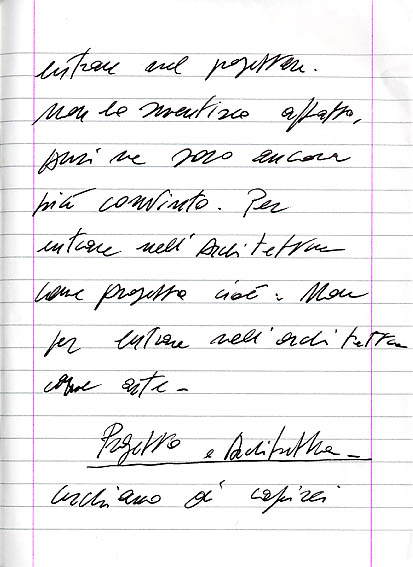 entrare nel progettare.
Non lo smentisco affatto,
anzi ne sono ancora
più convinto. Per
entrare nell'Architettura
come progetto cioè. Non
per entrare nell'architettura
come arte -
Progetto e Architettura -
cerchiamo di capirci